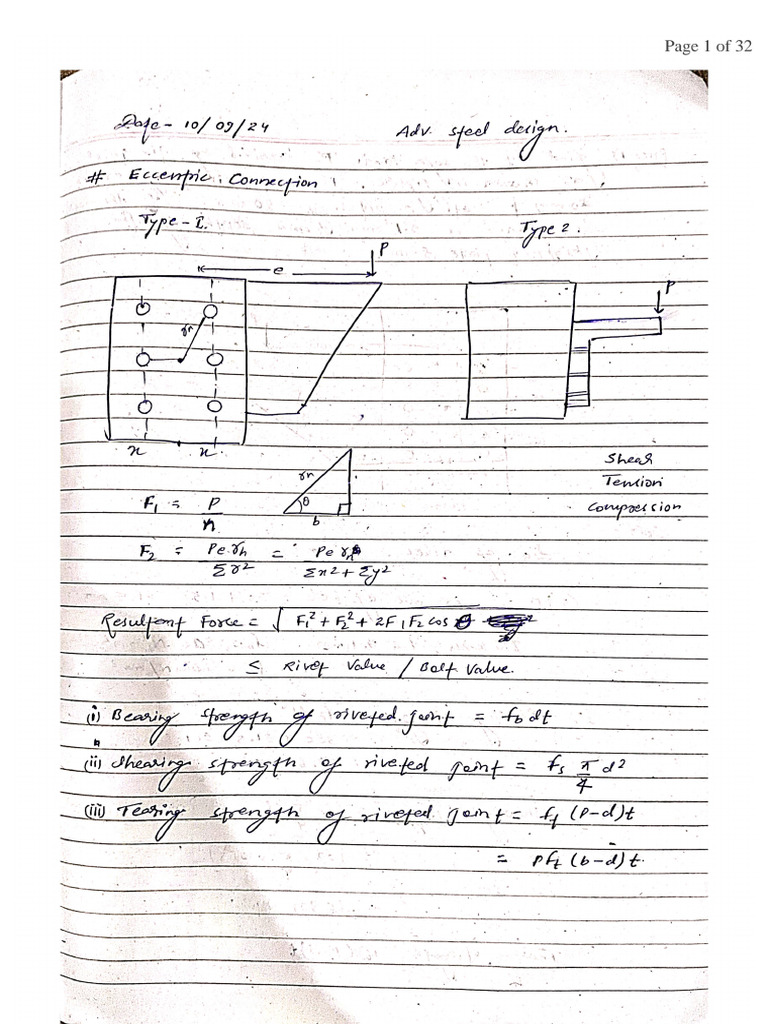 Page 1 of 32
Date- 10/09/24 Adv. steel design.
# Eccentric Connection
Type-I. Type 2.
P
e
P
rn
x x
rn
θ
b
Shear
Tension
Compression
F₁ = P/n
F₂ = Pe.rn/Σr² = Pe rn/Σx2+Σy2
Resultent Force = √F₁²+F₂²+2F₁F₂cosθ
≤ Rivet Value / Bolt Value.
(i) Bearing strength of riveted joint = fb dt
(ii) Shearing strength of riveted joint = fs π/4 d²
(iii) Tearing strength of riveted joint = ft (P-d)t
= Pft (b-d) t.